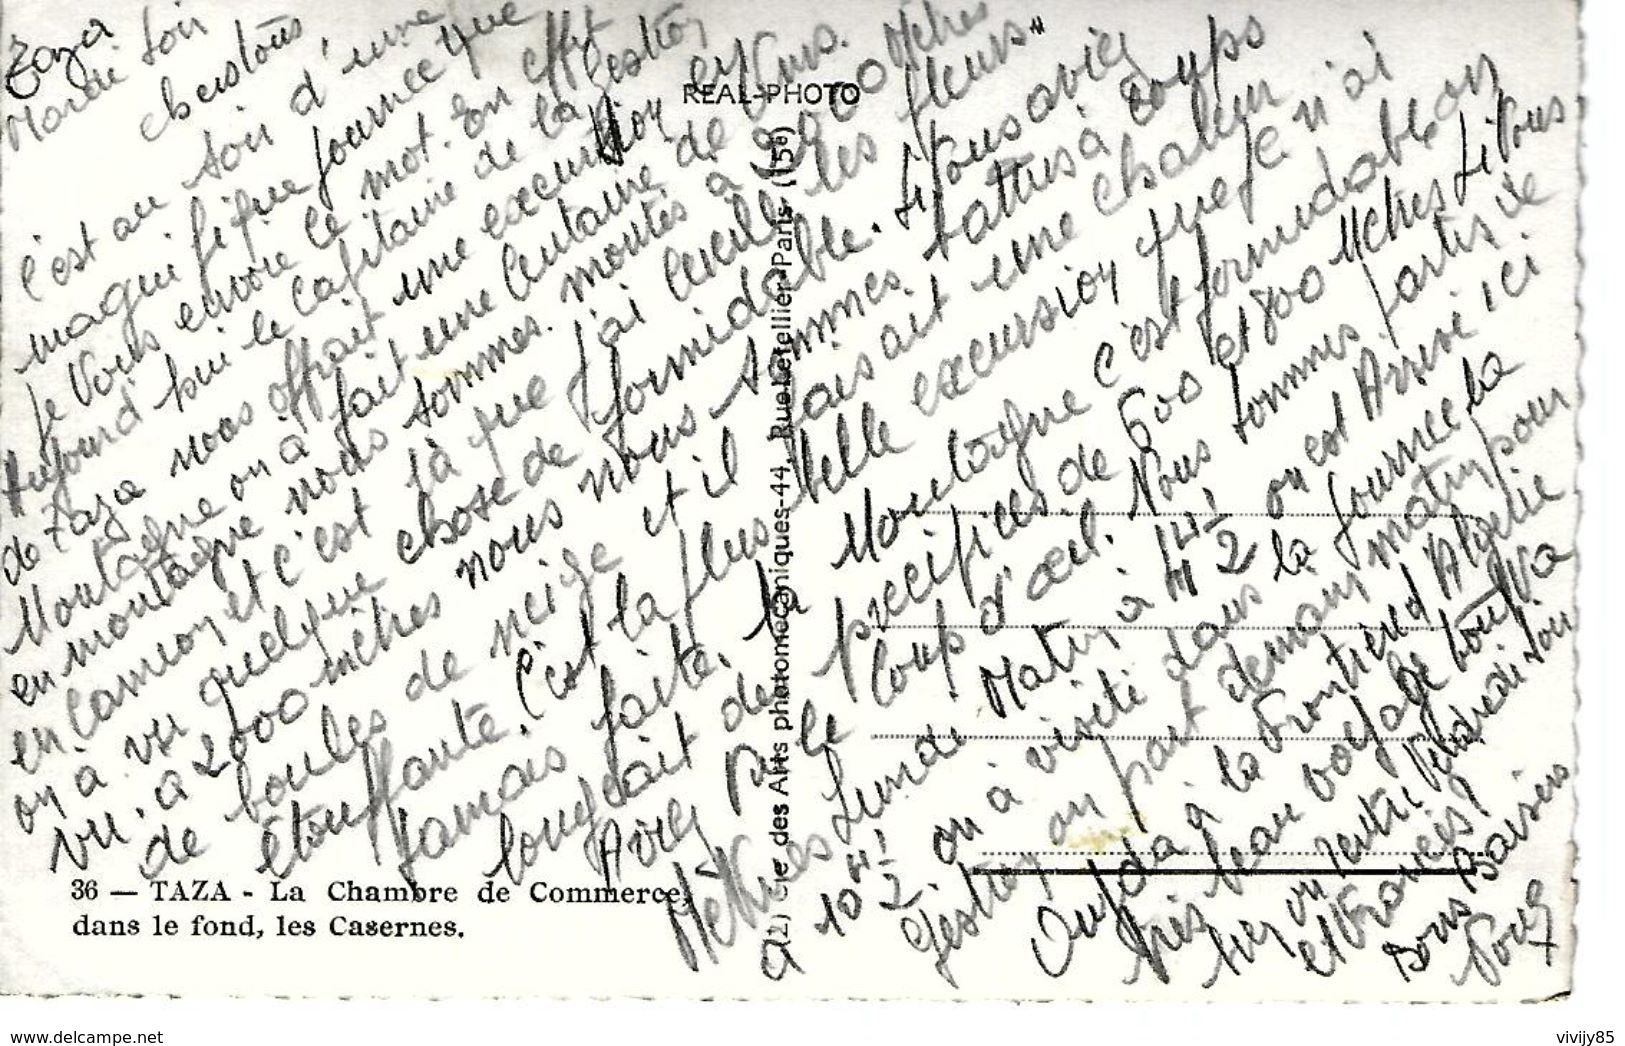 Taza
Mardi soir
c'est au soir d'une
magnifique journée que
je vous envoie ce mot. En effet
Aujourd'hui le capitaine de la gestion
de Taza nous offrait une excursion en
Montagne on à fait une centaine de Kms.
en montagne nous sommes montés à 2000 Mètres
en Camion et c'est là que j'ai cueilli les fleurs"
on a vu quelque chose de formidable. Si vous aviez
vu. à 2000 mètres nous nous sommes battus à coups
de boules de neige et il faisait une chaleur
étouffante. C'est la plus belle excursion que je n'ai
jamais faite. la Montagne c'est formidable on
longeait des précipices de 600 et 800 Mètres Si Vous
Aviez vu le coup d'œil. Nous sommes partis de
Meknes Lundi Matin à 4H 1/2 on est Arrivé ici
à 10H 1/2 on à visité dans la journée la
Gestion on part demain matin pour
Oujda à la Frontière d'Algérie
très beau voyage tout va
bien on rentre Vendredi soir
et Francis?
Bons Baisers
REAL-PHOTO
(2) Cie des Arts photomécaniques-44, Rue Letellier-Paris (15e)
36 — TAZA - La Chambre de Commerce,
dans le fond, les Casernes.
www.delcampe.net
vivijy85